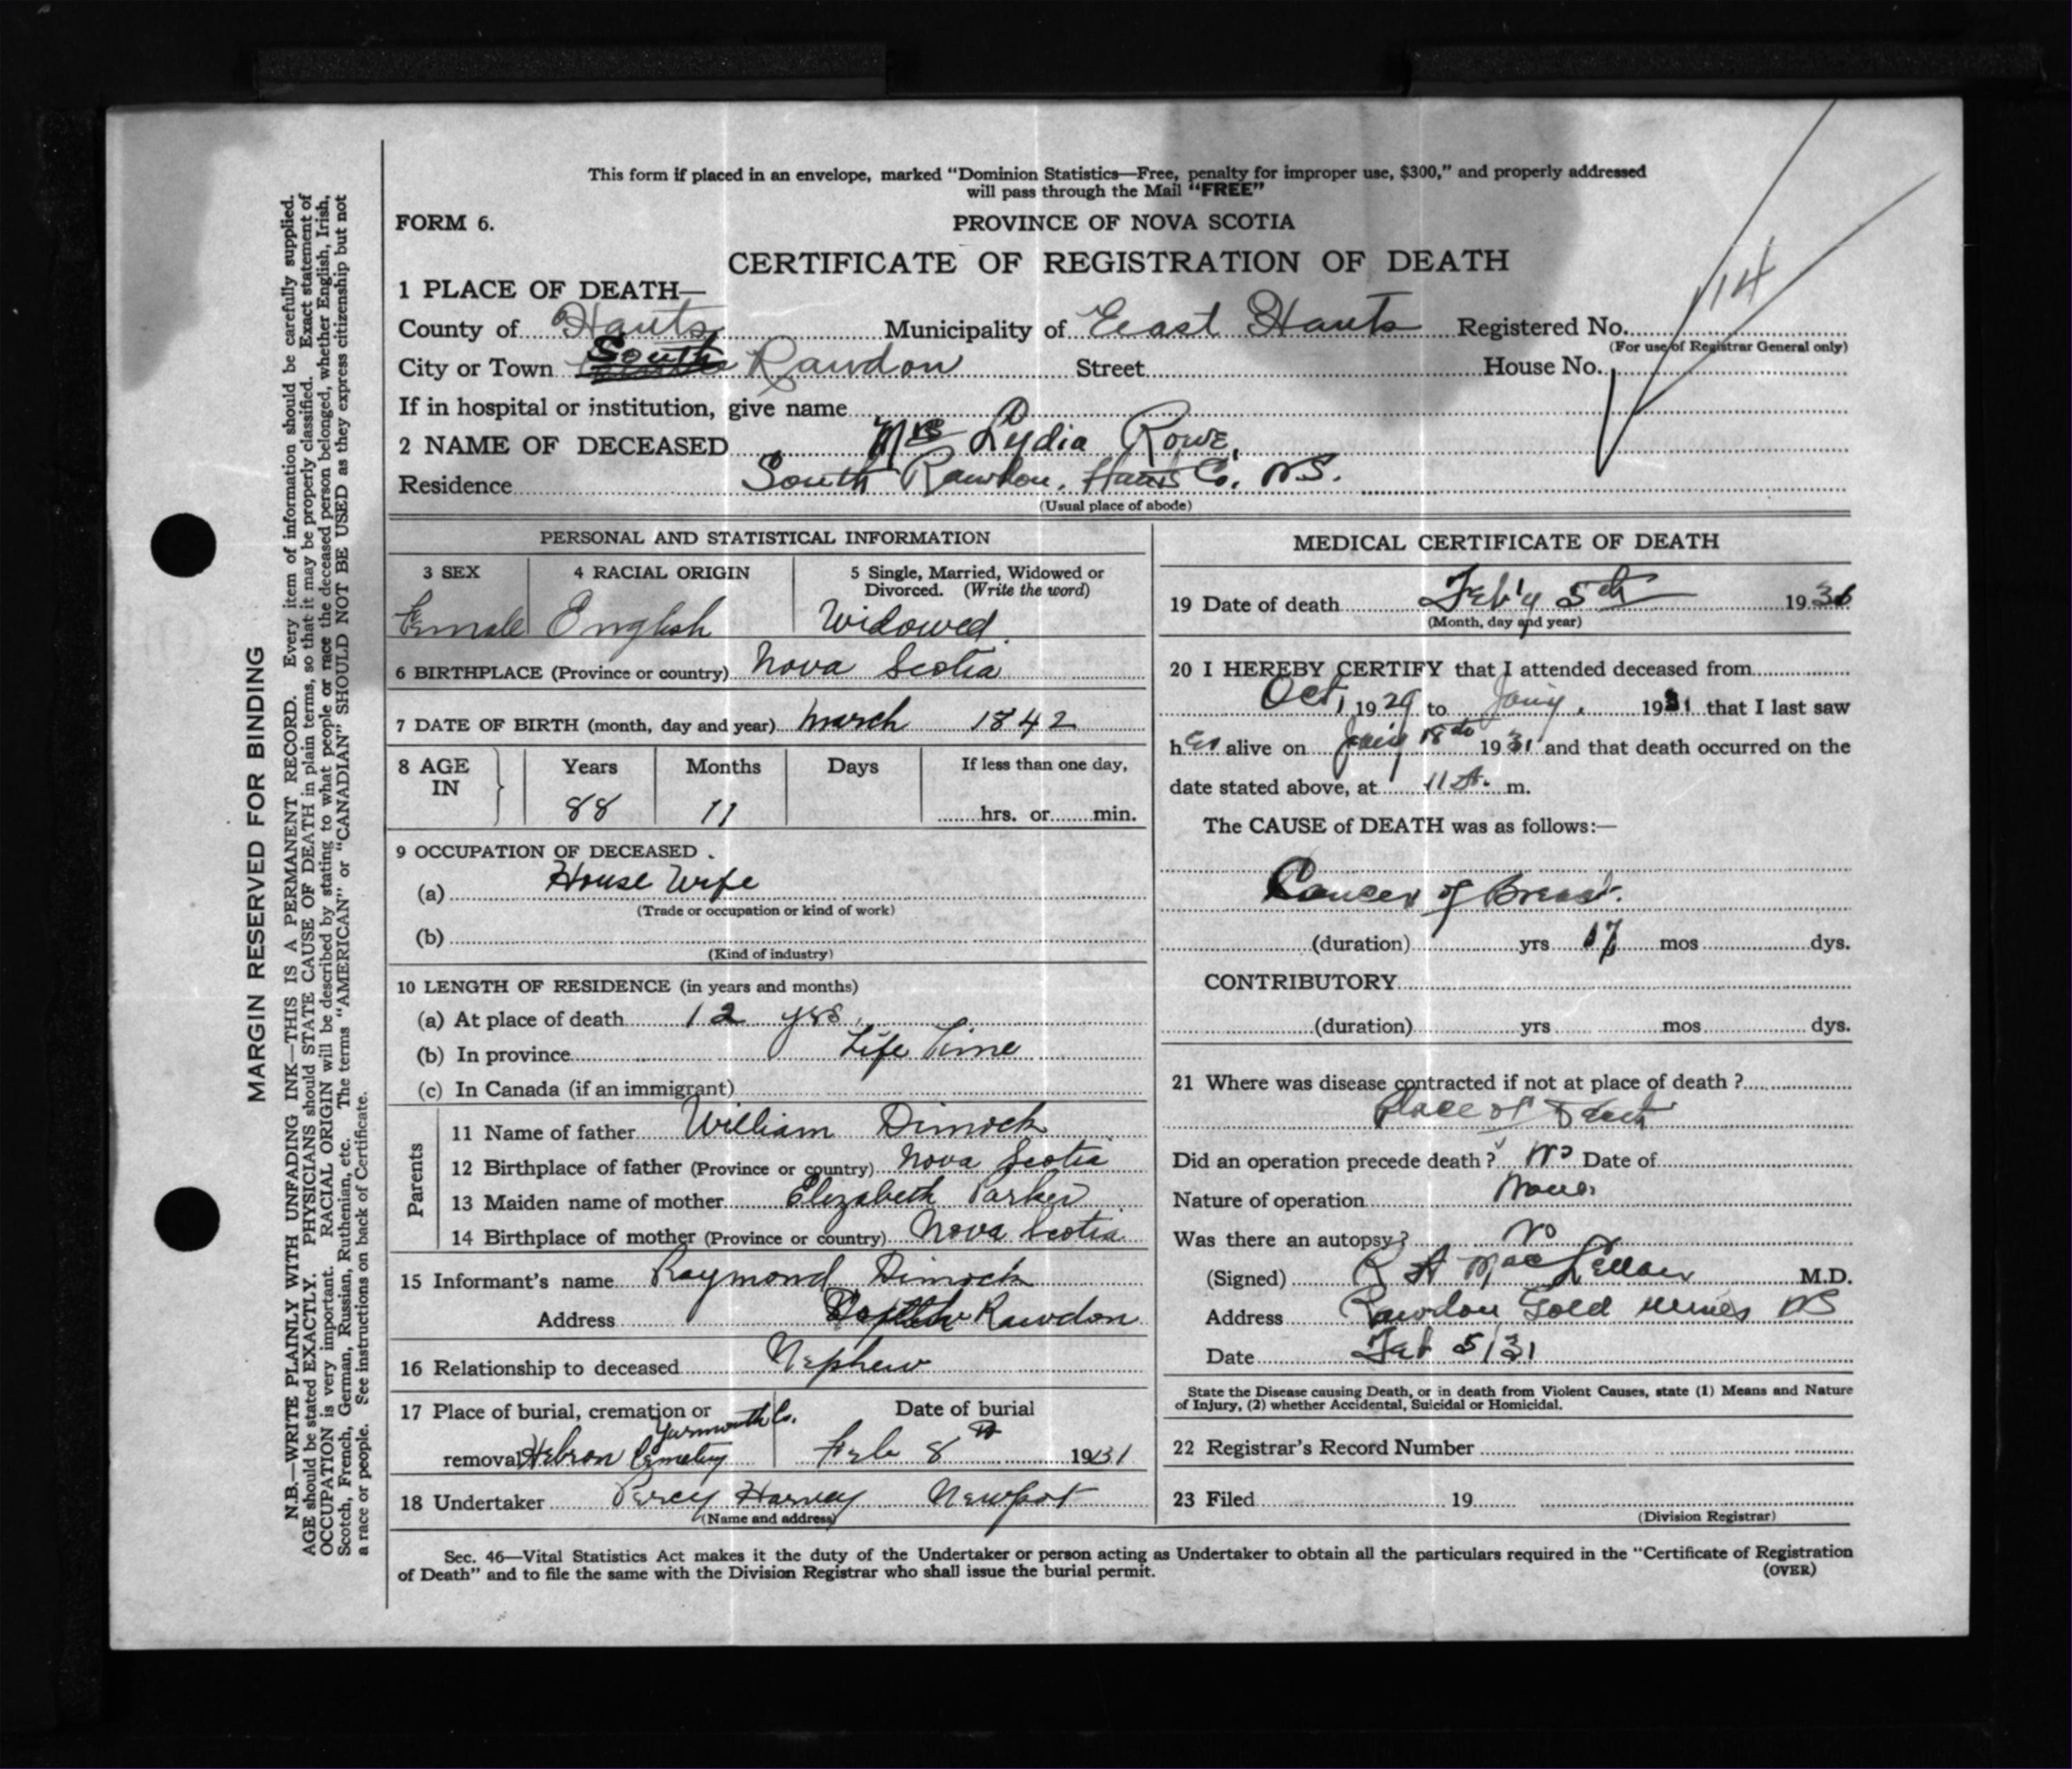 This form if placed in an envelope, marked "Dominion Statistics—Free, penalty for improper use, $300," and properly addressed
will pass through the Mail "FREE"
FORM 6.
PROVINCE OF NOVA SCOTIA
CERTIFICATE OF REGISTRATION OF DEATH
14
1 PLACE OF DEATH—
County of Hants Municipality of East Hants Registered No.
(For use of Registrar General only)
City or Town South Rawdon Street House No.
If in hospital or institution, give name
2 NAME OF DECEASED Mrs Lydia Rowe.
Residence South Rawdon, Hants Co. NS.
(Usual place of abode)
PERSONAL AND STATISTICAL INFORMATION
3 SEX 4 RACIAL ORIGIN 5 Single, Married, Widowed or
Divorced. (Write the word)
Female English Widowed.
6 BIRTHPLACE (Province or country) Nova Scotia
7 DATE OF BIRTH (month, day and year) March 1842
8 AGE IN Years Months Days If less than one day,
88 11 hrs. or min.
9 OCCUPATION OF DECEASED.
(a) House Wife
(Trade or occupation or kind of work)
(b)
(Kind of industry)
10 LENGTH OF RESIDENCE (in years and months)
(a) At place of death 12 yrs.
(b) In province Life Time
(c) In Canada (if an immigrant)
Parents
11 Name of father William Dimock
12 Birthplace of father (Province or country) Nova Scotia
13 Maiden name of mother Elizabeth Parker
14 Birthplace of mother (Province or country) Nova Scotia
15 Informant's name Raymond Dimock
Address South Rawdon
16 Relationship to deceased Nephew
17 Place of burial, cremation or Yarmouth Co. Date of burial
removal Hebron Cemetery Feb 8th 1931
18 Undertaker Percy Harvey Newport
(Name and address)
MEDICAL CERTIFICATE OF DEATH
19 Date of death Feb'y 5th 193
(Month, day and year)
20 I HEREBY CERTIFY that I attended deceased from
Oct, 1929 to Jany. 1931 that I last saw
her alive on Jany 18th 1931 and that death occurred on the
date stated above, at 11 A. m.
The CAUSE of DEATH was as follows:—
Cancer of Breast.
(duration) yrs 17 mos dys.
CONTRIBUTORY
(duration) yrs mos dys.
21 Where was disease contracted if not at place of death?
Place of Death
Did an operation precede death? No Date of
Nature of operation None
Was there an autopsy? No
(Signed) R A MacLellan M.D.
Address Rawdon Gold Mines NS
Date Feb 5/31
State the Disease causing Death, or in death from Violent Causes, state (1) Means and Nature
of Injury, (2) whether Accidental, Suicidal or Homicidal.
22 Registrar's Record Number
23 Filed 19
(Division Registrar)
Sec. 46—Vital Statistics Act makes it the duty of the Undertaker or person acting as Undertaker to obtain all the particulars required in the "Certificate of Registration
of Death" and to file the same with the Division Registrar who shall issue the burial permit.
(OVER)
MARGIN RESERVED FOR BINDING
N.B.—WRITE PLAINLY WITH UNFADING INK—THIS IS A PERMANENT RECORD. Every item of information should be carefully supplied.
AGE should be stated EXACTLY. PHYSICIANS should STATE CAUSE OF DEATH in plain terms, so that it may be properly classified. Exact statement of
OCCUPATION is very important. RACIAL ORIGIN will be described by stating to what people or race the deceased person belonged, whether English, Irish,
Scotch, French, German, Russian, Ruthenian, etc. The terms "AMERICAN" or "CANADIAN" SHOULD NOT BE USED as they express citizenship but not
a race or people. See instructions on back of Certificate.